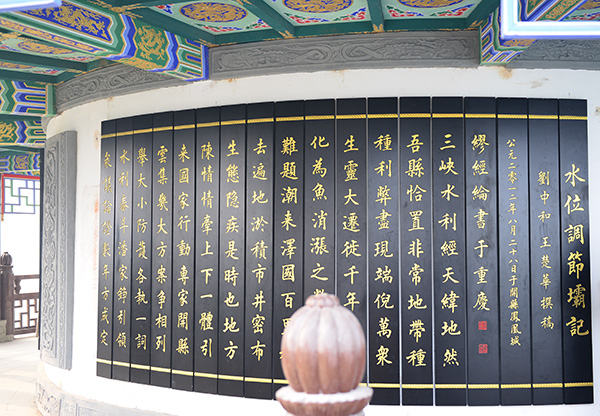 水位調節壩記
劉中和 王慧華 撰稿
公元二零一二年八月二十八日于開縣鳳凰城
繆經綸書于重慶
三峽水利經天緯地然
吾縣恰置非常地帶種
種利弊盡現端倪萬衆
生靈大遷徙千年
化為魚消漲之
難題潮来澤國百里
去遍地淤積市井密布
生態隐疾是時也地方
陳情情牽上下一體引
来國家行動專家開縣
雲集幾大方案爭相列
舉大小防護各執一詞
水利泰斗潘家錚引領
數年方或定